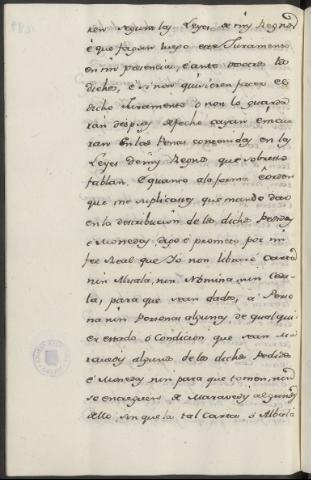 ren segun las Leyes de mis Regnos
é que fagan luego este Juramento
en mi presencia, é ante vosotros los
dichos, é si non quisieren facer el
dicho Juramento ó non lo guarda
ran despues de fecho cayan e incur
ran en las Penas contenidas en las
Leyes de mis Regnos que sobre esto
fablan, é quanto a la forma é orden
que me suplicastes que mande dar
en la destribucion de los dichos Pedidos
é Monedas digo é prometo por mi
fee Real que Yo non libraré Carta
nin Alvala, nin Nomina, nin Cedu
la, para que sean dados, a Perso
na nin Personas algunas de qualqui
er estado ó Condicion que sean Ma
ravedis algunos de los dichos Pedidos
é Monedas nin para que tomen, nin
se entreguen de Maravedis algunos
dello, sin que la tal Carta ó Albalá